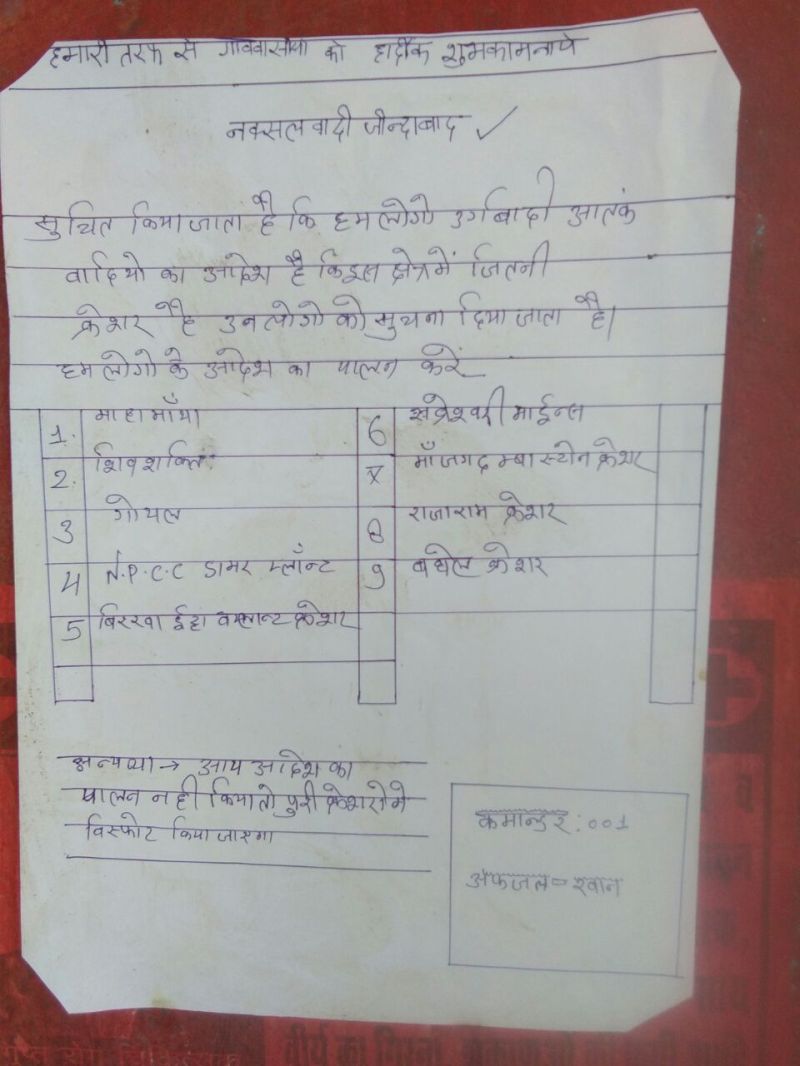 हमारी तरफ से गाववासीयो को हार्दीक शुभकामनाये
नक्सलवादी जीन्दाबाद ✓
सुचित किया जाता है कि हम लोगो उर्गबादी आतकं
वादियो का आदेश है कि इस क्षेत्र में जितनी
क्रेशर है उन लोगो को सुचना दिया जाता है।
हम लोगो के आदेश का पालन करें
1. माहामाँया
2. शिवशक्ति
3 गोयल
4 N.P.C.C डामर प्लाँन्ट
5 क्रेशर
6 माईन्स
माँ जगदम्बा स्टोन क्रेशर
8 राजाराम क्रेशर
9 बघेल क्रेशर
अन्यथा → आप आदेश का
पालन नही किया तो पुरी क्रेशरो मे
विस्फोट किया जाएगा
कमान्डर : 001
अफजल = खान